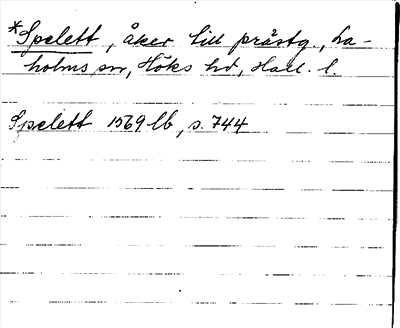 *Spelett, åker till prästg., La-
holms sn, Höks hd, Hall. l.
Spelett 1569 lb, s. 744